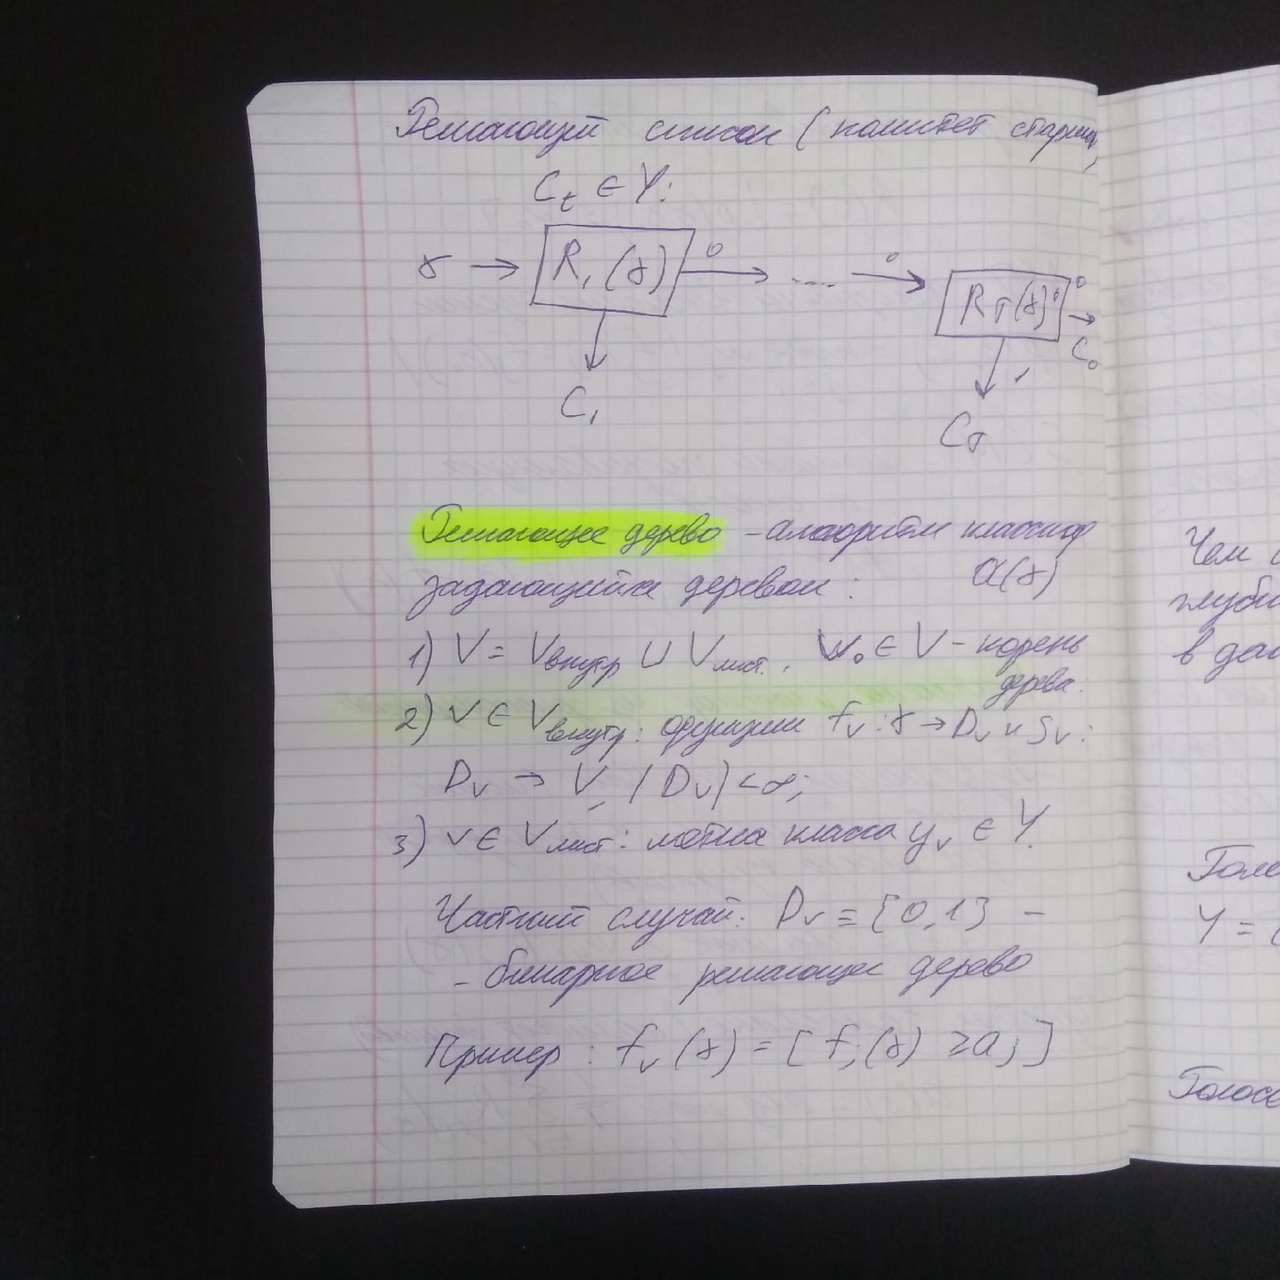 Решающий список (комитет старши
C_t ∈ Y:
x → R_1(x) 0 → .... 0 → R_T(x) 0 → C_0
C_1
C_T
Решающее дерево - алгоритм классиф
задающийся деревом: a(x)
1) V = V_внутр ∪ V_лист. v_0 ∈ V - корень
дерева.
2) v ∈ V_внутр: функции f_v: x → D_v и S_v:
D_v → V, |D_v| < ∞;
3) v ∈ V_лист: метка класса y_v ∈ Y.
Частный случай: D_v ≡ {0,1} -
- бинарное решающее дерево
Пример: f_v(x) = [f_j(x) ≥ a_j]
Чем
глуби
в да
Голо
Y = {
Голосо